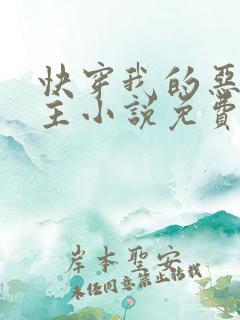 快穿我的恶
主小说免费
岸本聖安
未经同意禁止转载